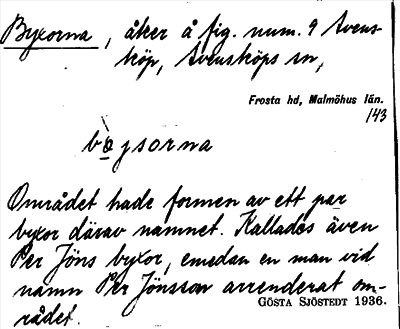 Byxorna, åker å fig. num. 9 Svens-
köp, Svensköps sn,
Frosta hd, Malmöhus län.
143
Området hade formen av ett par
byxor därav namnet. Kallades även
Per Jöns byxor, emedan en man vid
namn Per Jönsson arrenderat om-
rådet.
GÖSTA SJÖSTEDT 1936.